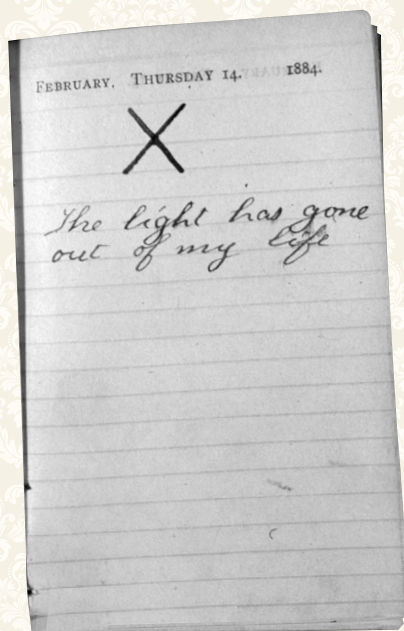 FEBRUARY. THURSDAY 14. 1884.
X
The light has gone
out of my life